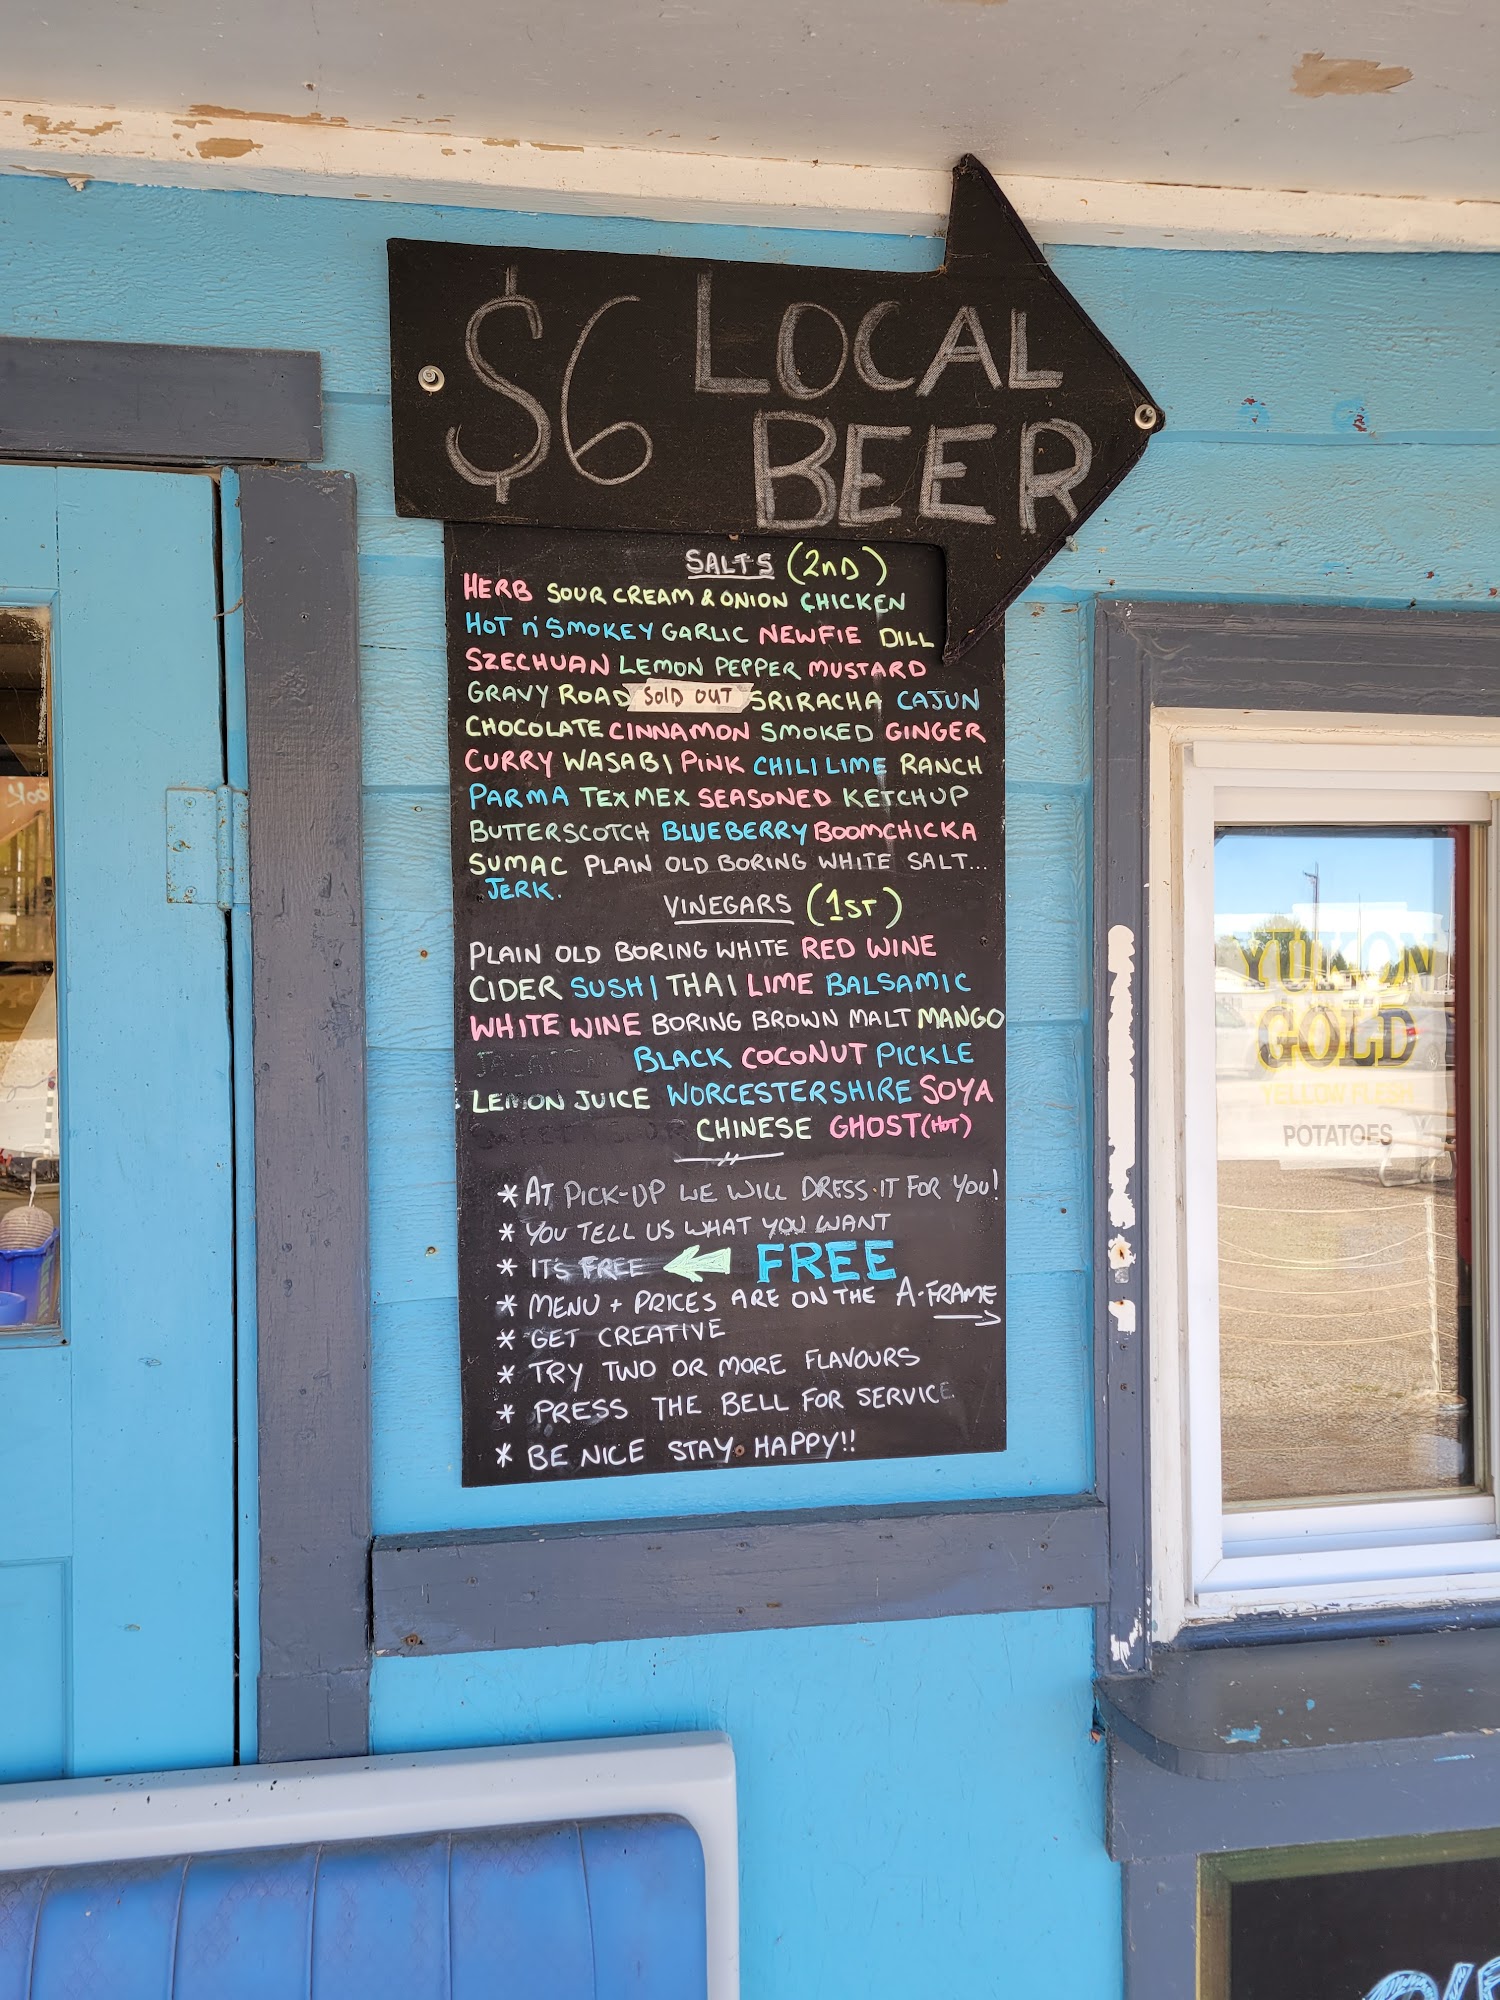 $6 LOCAL
BEER
SALTS (2ND)
HERB SOUR CREAM & ONION CHICKEN
HOT n' SMOKEY GARLIC NEWFIE DILL
SZECHUAN LEMON PEPPER MUSTARD
GRAVY ROAD SOLD OUT SRIRACHA CAJUN
CHOCOLATE CINNAMON SMOKED GINGER
CURRY WASABI PINK CHILI LIME RANCH
PARMA TEX MEX SEASONED KETCHUP
BUTTERSCOTCH BLUEBERRY BOOMCHICKA
SUMAC PLAIN OLD BORING WHITE SALT...
JERK.
VINEGARS (1ST)
PLAIN OLD BORING WHITE RED WINE
CIDER SUSHI THAI LIME BALSAMIC
WHITE WINE BORING BROWN MALT MANGO
BLACK COCONUT PICKLE
LEMON JUICE WORCESTERSHIRE SOYA
CHINESE GHOST (HOT)
* AT PICK-UP WE WILL DRESS IT FOR YOU!
* YOU TELL US WHAT YOU WANT
* ITS FREE FREE
* MENU + PRICES ARE ON THE A-FRAME
* GET CREATIVE
* TRY TWO OR MORE FLAVOURS
* PRESS THE BELL FOR SERVICE
* BE NICE STAY HAPPY!!
YUKON
GOLD
YELLOW FLESH
POTATOES